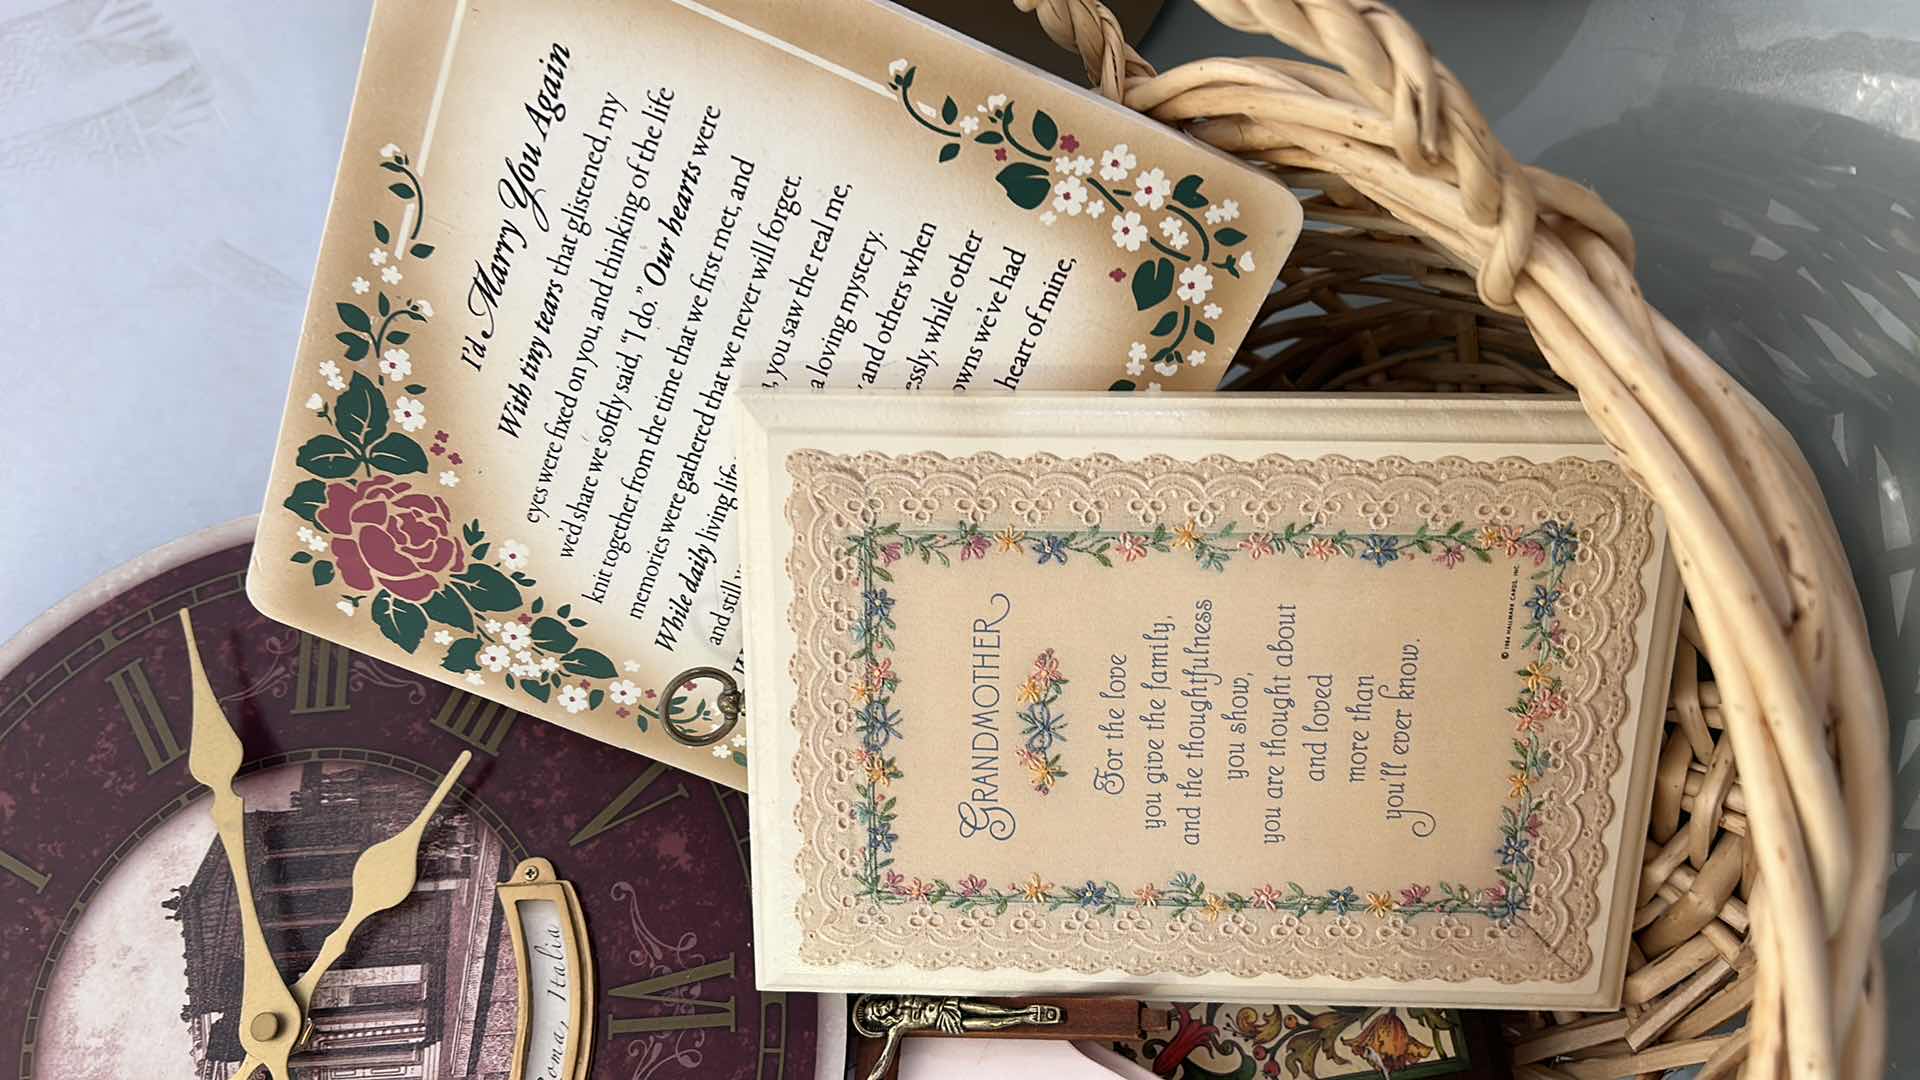 I'd Marry You Again
With tiny tears that glistened, my
eyes were fixed on you, and thinking of the life
we'd share we softly said, "I do." Our hearts were
knit together from the time that we first met, and
memories were gathered that we never will forget.
While daily living life, you saw the real me,
and still a loving mystery.
and others when
while other
we've had
heart of mine,
GRANDMOTHER
For the love
you give the family,
and the thoughtfulness
you show,
you are thought about
and loved
more than
you'll ever know.
© 1984 HALLMARK CARDS, INC.
I
II
III
IIII
V
VI
Roma, Italia